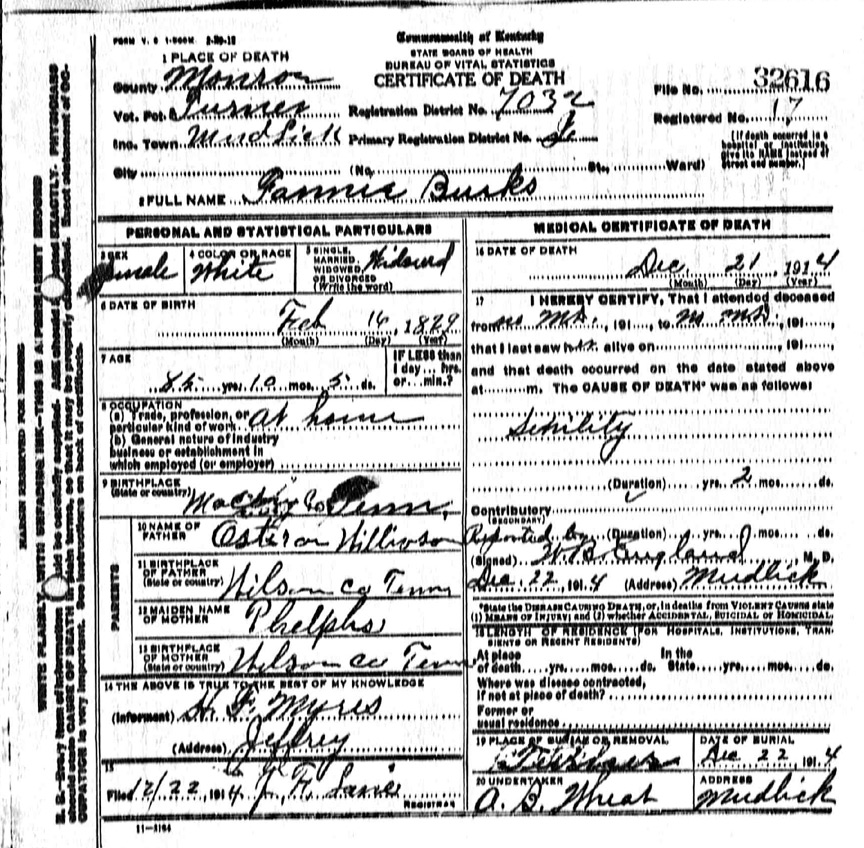 FORM V. S 1-500M 2-20-12
Commonwealth of Kentucky
STATE BOARD OF HEALTH
BUREAU OF VITAL STATISTICS
CERTIFICATE OF DEATH
1 PLACE OF DEATH
County Monroe
Vot. Pct. Turner
Registration District No. 7032
File No. 32616
Inc. Town Mud Lick
Primary Registration District No.
Registered No. 17
[If death occurred in a hospital or institution, give its NAME instead of street and number.]
City (No. St., Ward)
2 FULL NAME Fannie Burks
PERSONAL AND STATISTICAL PARTICULARS
3 SEX Female
4 COLOR OR RACE White
5 SINGLE, MARRIED, WIDOWED, OR DIVORCED (Write the word) Widowed
6 DATE OF BIRTH
Feb 16, 1829
(Month) (Day) (Year)
7 AGE
85 yrs. 10 mos. 5 ds.
IF LESS than 1 day... hrs. or... min.?
8 OCCUPATION
(a) Trade, profession, or particular kind of work at home
(b) General nature of industry
business or establishment in
which employed (or employer)
9 BIRTHPLACE
(State or country) Co Tenn.
PARENTS
10 NAME OF FATHER
11 BIRTHPLACE OF FATHER
(State or country) Wilson co Tenn
12 MAIDEN NAME OF MOTHER Phelphs
13 BIRTHPLACE OF MOTHER
(State or country) Wilson co Tenn
14 THE ABOVE IS TRUE TO THE BEST OF MY KNOWLEDGE
(Informant) H. F. Myres
(Address) Jeffrey
15
Filed 12/22, 1914
REGISTRAR
11-3184
MEDICAL CERTIFICATE OF DEATH
16 DATE OF DEATH
Dec 21 1914
(Month) (Day) (Year)
17 I HEREBY CERTIFY, That I attended deceased
from no MD., 191 , to no MD., 191
that I last saw h alive on , 191
and that death occurred on the date stated above
at m. The CAUSE OF DEATH* was as follows:
Senility
(Duration) yrs. 2 mos. ds.
Contributory
(SECONDARY)
Reported by (Duration) yrs. mos. ds.
(Signed) W B England, M. D.
Dec. 22, 1914 (Address) Mudlick
*State the DISEASE CAUSING DEATH, or, in deaths from VIOLENT CAUSES state
(1) MEANS OF INJURY; and (2) whether ACCIDENTAL, SUICIDAL or HOMICIDAL.
18 LENGTH OF RESIDENCE (FOR HOSPITALS, INSTITUTIONS, TRANSIENTS OR RECENT RESIDENTS)
At place of death yrs. mos. ds. In the State yrs. mos. ds.
Where was disease contracted,
if not at place of death?
Former or
usual residence
19 PLACE OF BURIAL OR REMOVAL
DATE OF BURIAL
Dec 22, 1914
20 UNDERTAKER
A. B. Wheat
ADDRESS
Mudlick
MARGIN RESERVED FOR BINDING
WRITE PLAINLY, WITH UNFADING INK—THIS IS A PERMANENT RECORD
N. B.—Every item of information should be carefully supplied. AGE should be stated EXACTLY. PHYSICIANS
should state CAUSE OF DEATH in plain terms, so that it may be properly classified. Exact statement of OC-
CUPATION is very important. See instructions on back of certificate.